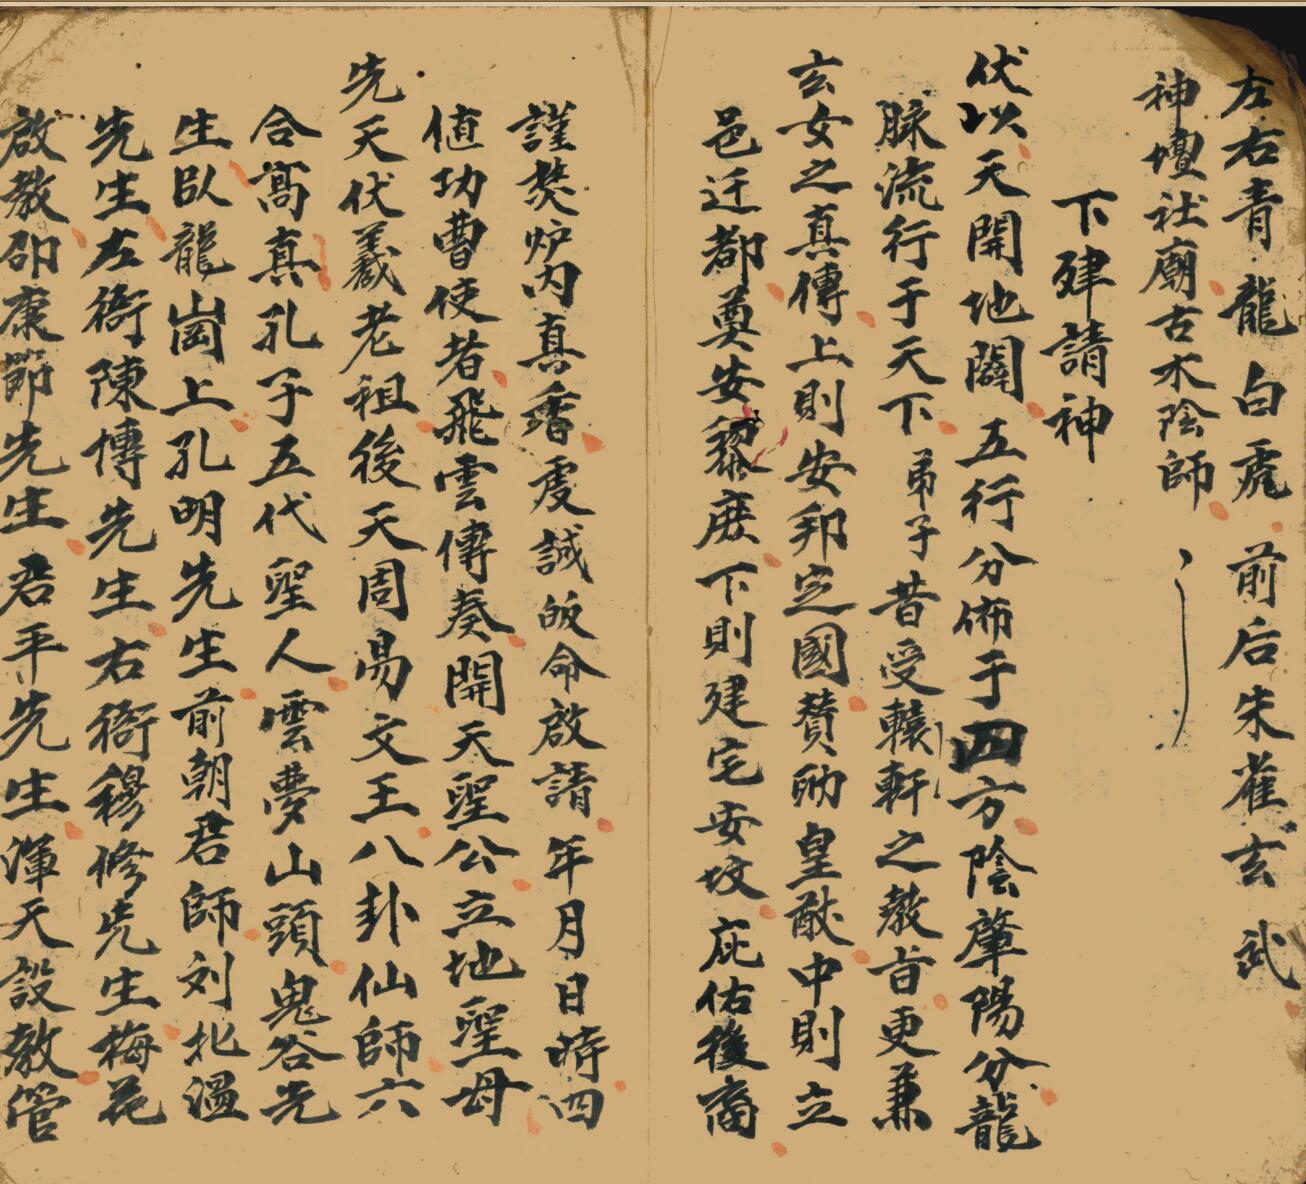 左右青龍白虎前后朱雀玄武
神壇社廟古木陰師
下肂請神
伏以天開地闢五行分佈于四方陰肇陽分龍
脉流行于天下弟子昔受轅軒之教旨更兼
玄女之真傳上則安邦定國賛助皇猷中則立
邑迁都奠安黎庶下則建宅安坟庇佑後裔
謹焚炉内真香虔誠皈命啟請年月日時四
值功曹使者飛雲傳奏開天聖公立地聖母
先天伏羲老祖後天周易文王八卦仙師六
合高真孔子五代聖人雲夢山頭鬼谷先
生臥龍崗上孔明先生前朝君師刘北溫
先生左衙陳傳先生右衙穆修先生梅花
啟教邵康節先生君平先生渾天設教管